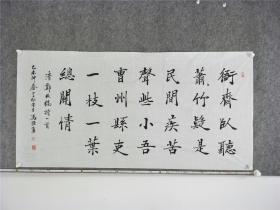 衙齋臥聽
蕭竹疑是
民間疾苦
聲些小吾
曹州縣吏
一枝一葉
總關情
清鄭板橋詩一首